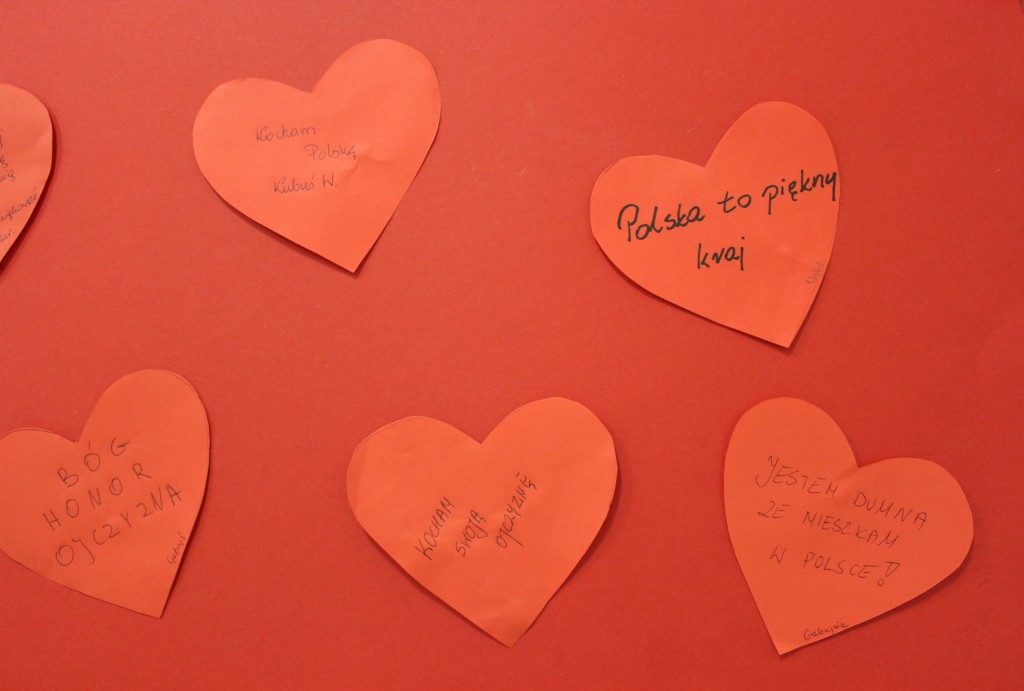 Kocham
Polskę
Kubuś W.
Polska to piękny
kraj
BÓG
HONOR
OJCZYZNA
KOCHAM
SWOJĄ
OJCZYZNĘ
JESTEM DUMNA
ŻE MIESZKAM
W POLSCE!